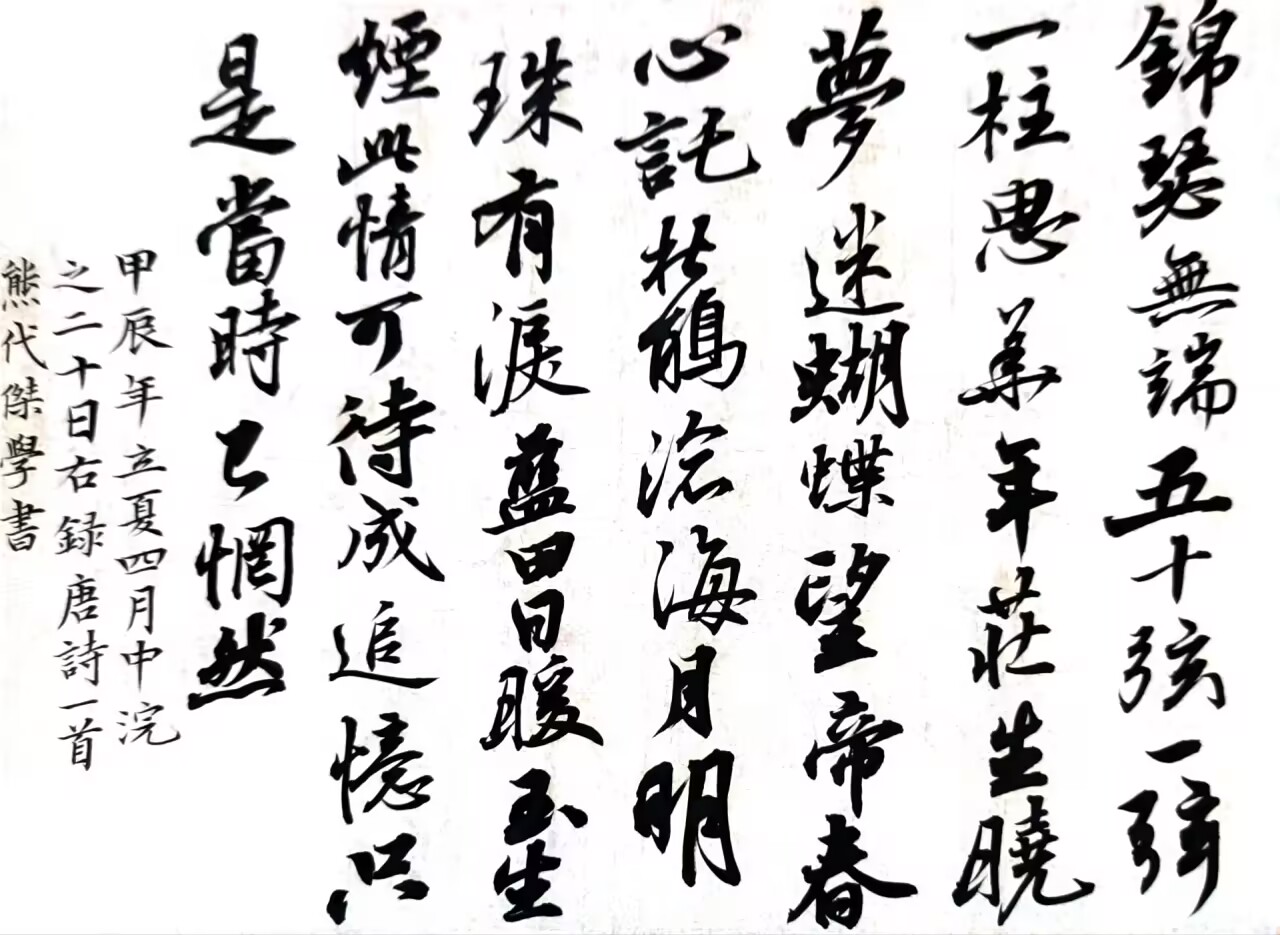 錦瑟無端五十弦一弦
一柱思華年莊生曉
夢迷蝴蝶望帝春
心託杜鵑滄海月明
珠有淚藍田日暖玉生
煙此情可待成追憶只
是當時已惘然
甲辰年立夏四月中浣
之二十日右録唐詩一首
熊代傑學書